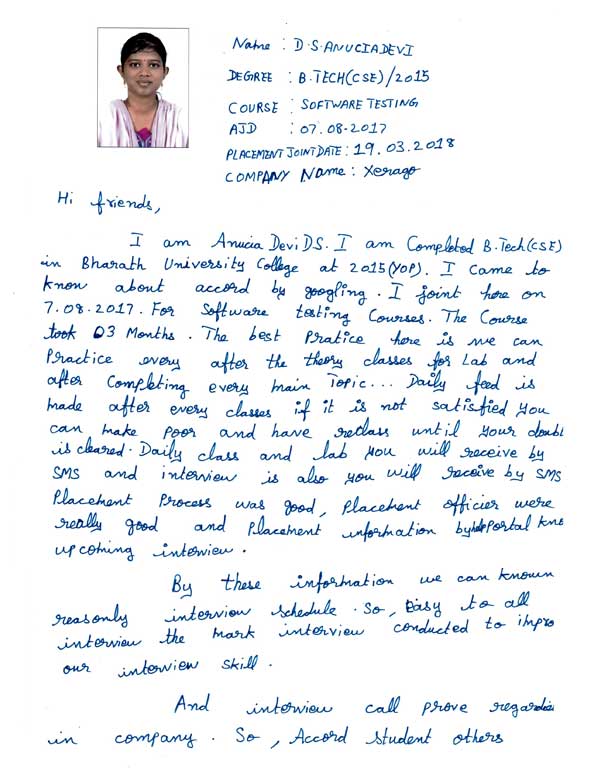 Name : D.S.ANUCIADEVI
DEGREE : B.TECH(CSE)/2015
COURSE : SOFTWARE TESTING
AJD : 07.08-2017
PLACEMENT JOINT DATE : 19.03.2018
COMPANY Name : Xerago
Hi friends,
I am Anucia Devi D.S. I am Completed B.Tech(CSE)
in Bharath University College at 2015(YOP). I came to
know about accord by googling. I joint here on
7.08.2017. For Software testing Courses. The Course
took 03 Months. The best Pratice here is we can
Practice every after the theory classes for Lab and
after Completing every main Topic... Daily feed is
made after every classes if it is not satisfied you
can make poor and have reclass until your doubt
is cleared. Daily class and lab you will receive by
SMS and interview is also you will receive by SMS
Placement Process was good, Placement officier were
really good and Placement information by portal kno
upcoming interview.
By these information we can known
reasonly interview schedule. So, Easy to all
interview the mark interview conducted to impro
our interview skill.
And interview call prove regardin
in company. So, Accord Student others